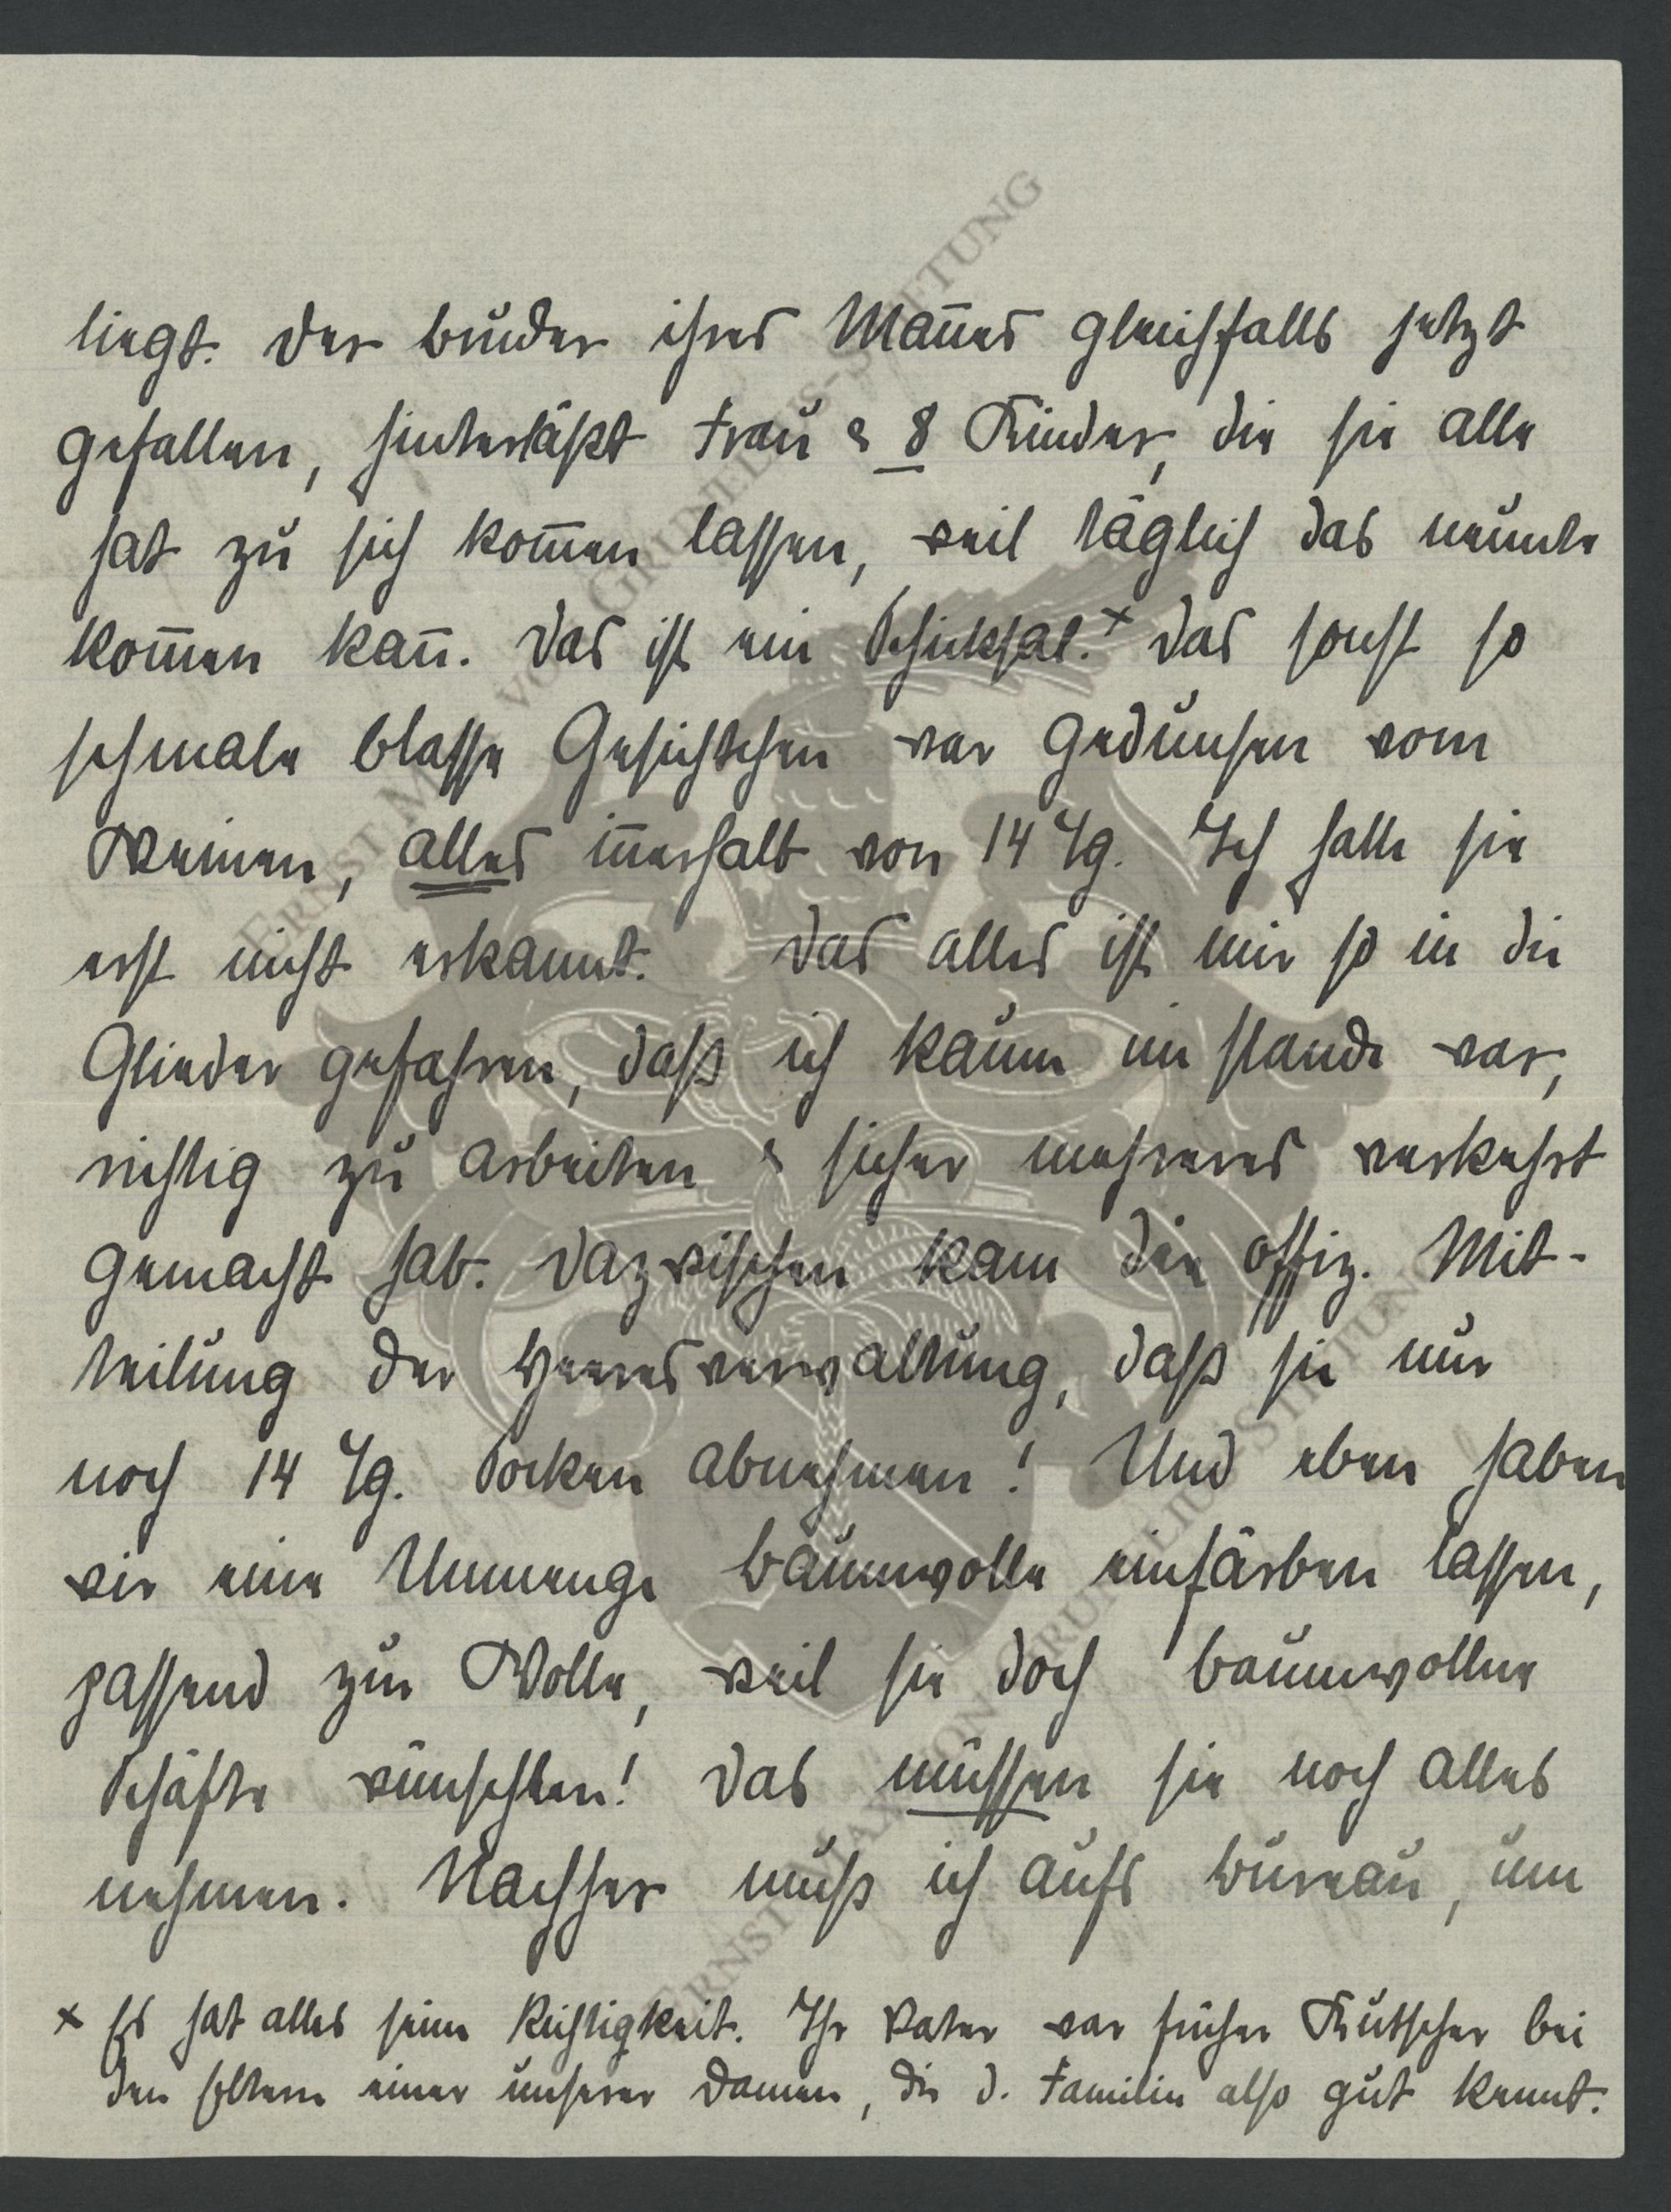 liegt. Der Bruder ihres Mannes gleichfalls jetzt
gefallen, hinterläßt Frau & 8 Kinder, die sie alle
hat zu sich kommen lassen, weil täglich das neunte
kommen kann. Das ist ein Schicksal.x Das sonst so
schmale blasse Gesichtchen war gedunsen vom
Weinen, alles innerhalb von 14 Tg. Ich hatte sie
erst nicht erkannt. Das alles ist mir so in die
Glieder gefahren, daß ich kaum im stande war,
richtig zu arbeiten & sicher mehreres verkehrt
gemacht hab. Dazwischen kam die offiz. Mit-
teilung der Heeresverwaltung, daß sie nur
noch 14 Tg. Socken abnehmen! Und eben haben
wir eine Unmenge Baumwolle einfärben lassen,
passend zur Wolle, weil sie doch baumwollne
Schäfte wünschten! Das müssen sie noch alles
nehmen. Nachher muß ich aufs Büreau, um
x Es hat alles seine Richtigkeit. Ihr Vater war früher Kutscher bei
den Eltern einer unserer Damen, die d. Familie also gut kennt.
ERNST MAX VON GRUNELIUS-STIFTUNG
ERNST MAX VON GRUNELIUS-STIFTUNG